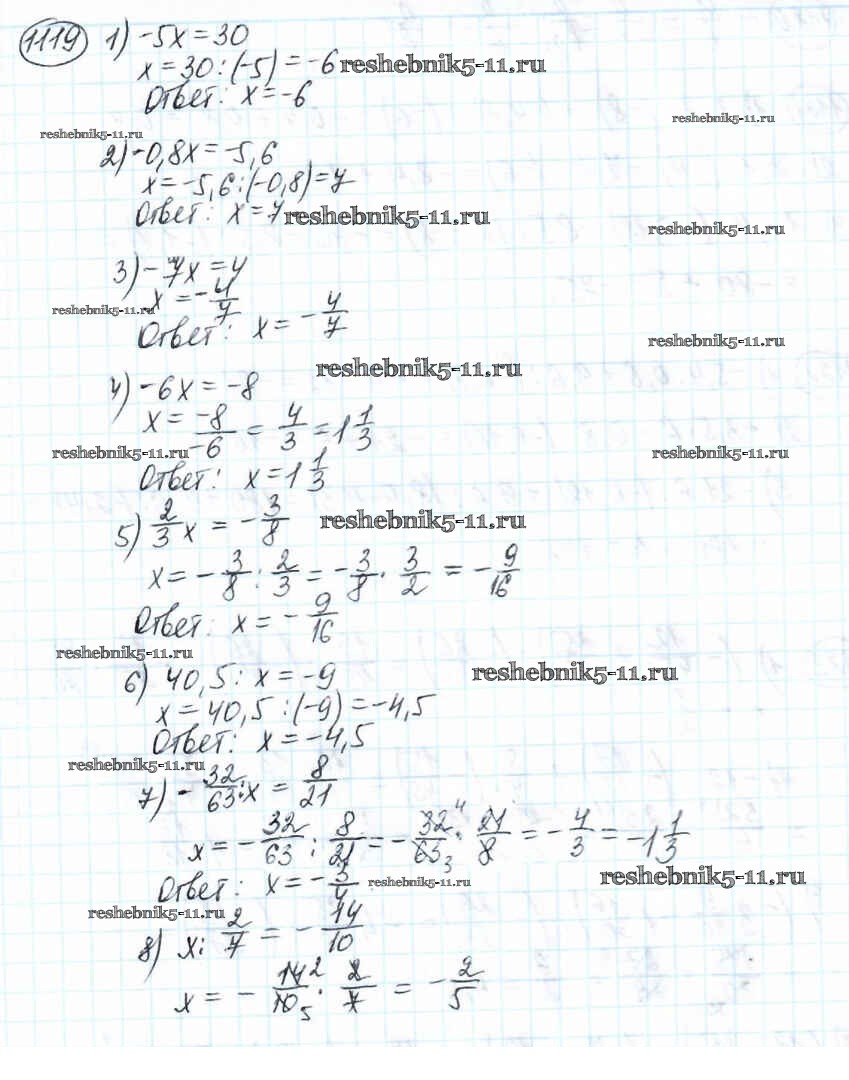 1119 1) -5x = 30
x = 30 : (-5) = -6 reshebnik5-11.ru
Ответ: x = -6
reshebnik5-11.ru reshebnik5-11.ru
2) -0,8x = -5,6
x = -5,6 : (-0,8) = 7
Ответ: x = 7 reshebnik5-11.ru
reshebnik5-11.ru
3) -7x = 4
reshebnik5-11.ru x = -4/7
Ответ: x = -4/7
reshebnik5-11.ru
reshebnik5-11.ru
4) -6x = -8
x = -8/-6 = 4/3 = 1 1/3
reshebnik5-11.ru reshebnik5-11.ru
Ответ: x = 1 1/3
5) 2/3 x = -3/8 reshebnik5-11.ru
x = -3/8 : 2/3 = -3/8 · 3/2 = -9/16
Ответ: x = -9/16
reshebnik5-11.ru
6) 40,5 : x = -9 reshebnik5-11.ru
x = 40,5 : (-9) = -4,5
Ответ: x = -4,5
reshebnik5-11.ru
7) -32/63 : x = 8/21
x = -32/63 : 8/21 = -32/63 4 3 · 21/8 = -4/3 = -1 1/3
Ответ: x = -3/4 reshebnik5-11.ru reshebnik5-11.ru
reshebnik5-11.ru
8) x : 2/7 = -14/10
x = -14/10 2 5 · 2/7 = -2/5